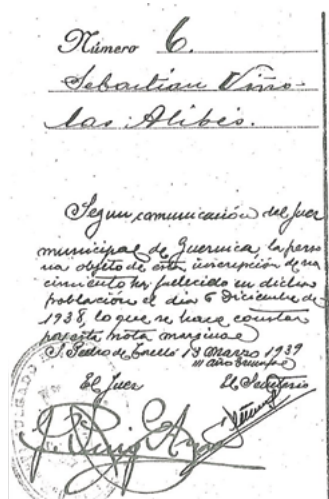 Número 6.
Sebastian Viño-
las Alibés.
Segun comunicación del Juez
municipal de Guernica, la perso
na objeto de esta inscripción de na
cimiento ha fallecido en dicha
población el día 6 Diciembre de
1938, lo que se hace constar
por esta nota marginal
S. Pedro de Torelló 13 Marzo 1939
III año triunfal
El Juez El Secretario
J. Puig
JUZGADO